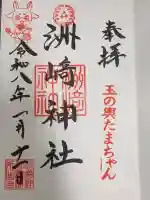 奉拝
玉の輿たまちゃん
洲崎神社
令和八年一月十一日